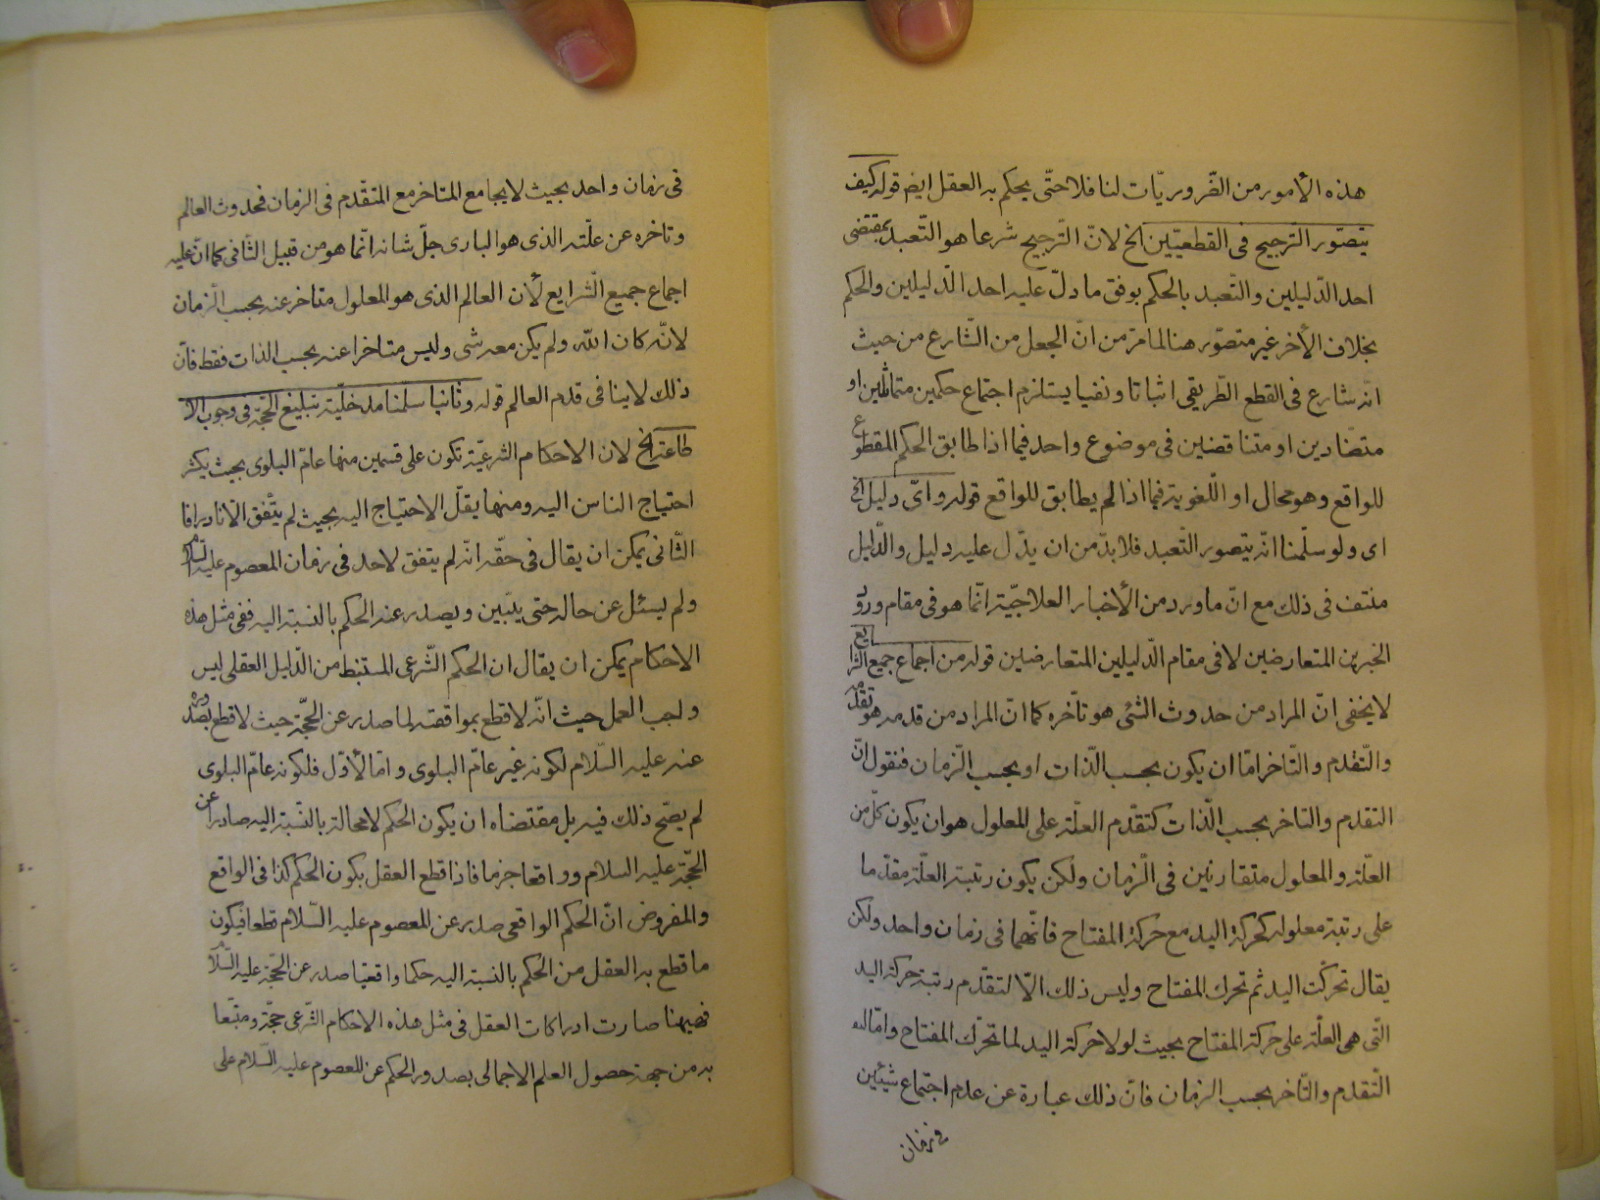 هذه الأمور من الضّروريّات لنا فلا حتّى يحكم به العقل ايض قوله كيف
يتصوّر الترجيح فى القطعيّين الخ لانّ التّرجيح شرعا هو التّعبد بمقتضى
احد الدّليلين والتّعبد بالحكم بوفق ما دلّ عليه احد الدّليلين والحكم
بخلاف الأخر غير متصوّر هنا لما مرّ من انّ الجعل من الشّارع من حيث
انّه شارع فى القطع الطّريقى اثباتا ونفيا يستلزم اجتماع حكمين متماثلين او
متضادين او متناقضين فى موضوع واحد فيما اذا طابق الحكم المقطوع
للواقع وهو محال او اللّغوية فيما اذا لم يطابق للواقع قوله واىّ دليل الخ
اى ولو سلّمنا انّه يتصور التّعبد فلا بدّ من ان يدّل عليه دليل والدّليل
منتف فى ذلك مع انّ ما ورد من الأخبار العلاجيّة انّما هو فى مقام ورود
الخبرين المتعارضين لا فى مقام الدّليلين المتعارضين قوله من اجماع جميع الشرايع
لا يخفى انّ المراد من حدوث الشئ هو تأخره كما انّ المراد من قدمه هو تقدمه
والتّقدم والتّاخر امّا ان يكون بحسب الذّات او بحسب الزّمان فنقول انّ
التقدم والتاخر بحسب الذّات كتقدّم العلّة على المعلول هو ان يكون كلّ من
العلّة والمعلول متقارنين فى الزّمان ولكن يكون رتبة العلّة مقدّما
على رتبة معلوله كحركة اليد مع حركة المفتاح فانّهما فى زمان واحد ولكن
يقال تحرّكت اليد ثم تحرك المفتاح وليس ذلك الّا لتقدّم رتبة حركة اليد
الّتى هى العلّة على حركة المفتاح بحيث لولا حركة اليد لما تحرّك المفتاح وامّا
التّقدم والتّاخر بحسب الزمان فانّ ذلك عبارة عن عدم اجتماع شيئين
فى زمان
فى زمان واحد بحيث لا يجامع المتاخر مع المتقّدم فى الزمان فحدوث العالم
وتاخره عن علّته الذى هو البارى جلّ شانه انّما هو من قبيل الثّانى كما انّ عليه
اجماع جميع الشّرايع لأن العالم الذى هو المعلول متاخر عنه بحسب الزّمان
لانّه كان اللّه ولم يكن معه شى وليس متاخرا عنه بحسب الذات فقط فانّ
ذلك لا ينافى قدم العالم قوله وثانيا سلّمنا مدخليّة تبليغ الحجّة فى وجوب الا
طاعة الخ لان الاحكام الشرعيّة تكون على قسمين منها عامّ البلوى بحيث يكثر
احتياج الناس اليه ومنها يقلّ الاحتياج اليه بحيث لم يتّفق الّا نادرا فا
الثّانى يمكن ان يقال فى حقّه انّه لم يتفق لاحد فى زمان المعصوم عليه السّلام
ولم يسئل عن حاله حتى يتبّين ويصدر عنه الحكم بالنسبة اليه ففى مثل هذه
الاحكام يمكن ان يقال ان الحكم الشّرعى المستنبط من الدّليل العقلى ليس
واجب العمل حيث انّه لا قطع بموافقته لما صدر عن الحجّة حيث لا قطع بصدوره
عنه عليه السّلام لكونه غير عامّ البلوى وامّا الأوّل فلكونه عامّ البلوى
لم يصحّ ذلك فيه بل مقتضاه ان يكون الحكم لا محالة بالنّسبة اليه صادرا عن
الحجّة عليه السلام وواقعا جزما فاذا قطع العقل بكون الحكم كذا فى الواقع
والمفروض انّ الحكم الواقعى صدر عن المعصوم عليه السّلام قطعا فيكون
ما قطع به العقل من الحكم بالنسبة اليه حكما واقعيّا صدر عن الحجّة عليه السّلام
فهيهنا صارت ادراكات العقل فى مثل هذه الاحكام الشّرعى حجّة ومتبّعا
به من جهة حصول العلم الاجمالى بصدور الحكم عن المعصوم عليه السّلام على